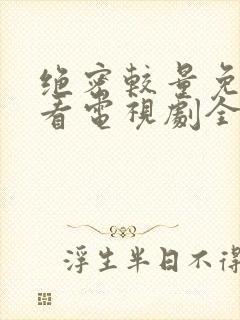 绝密較量免
看電視劇全
浮生半日不得